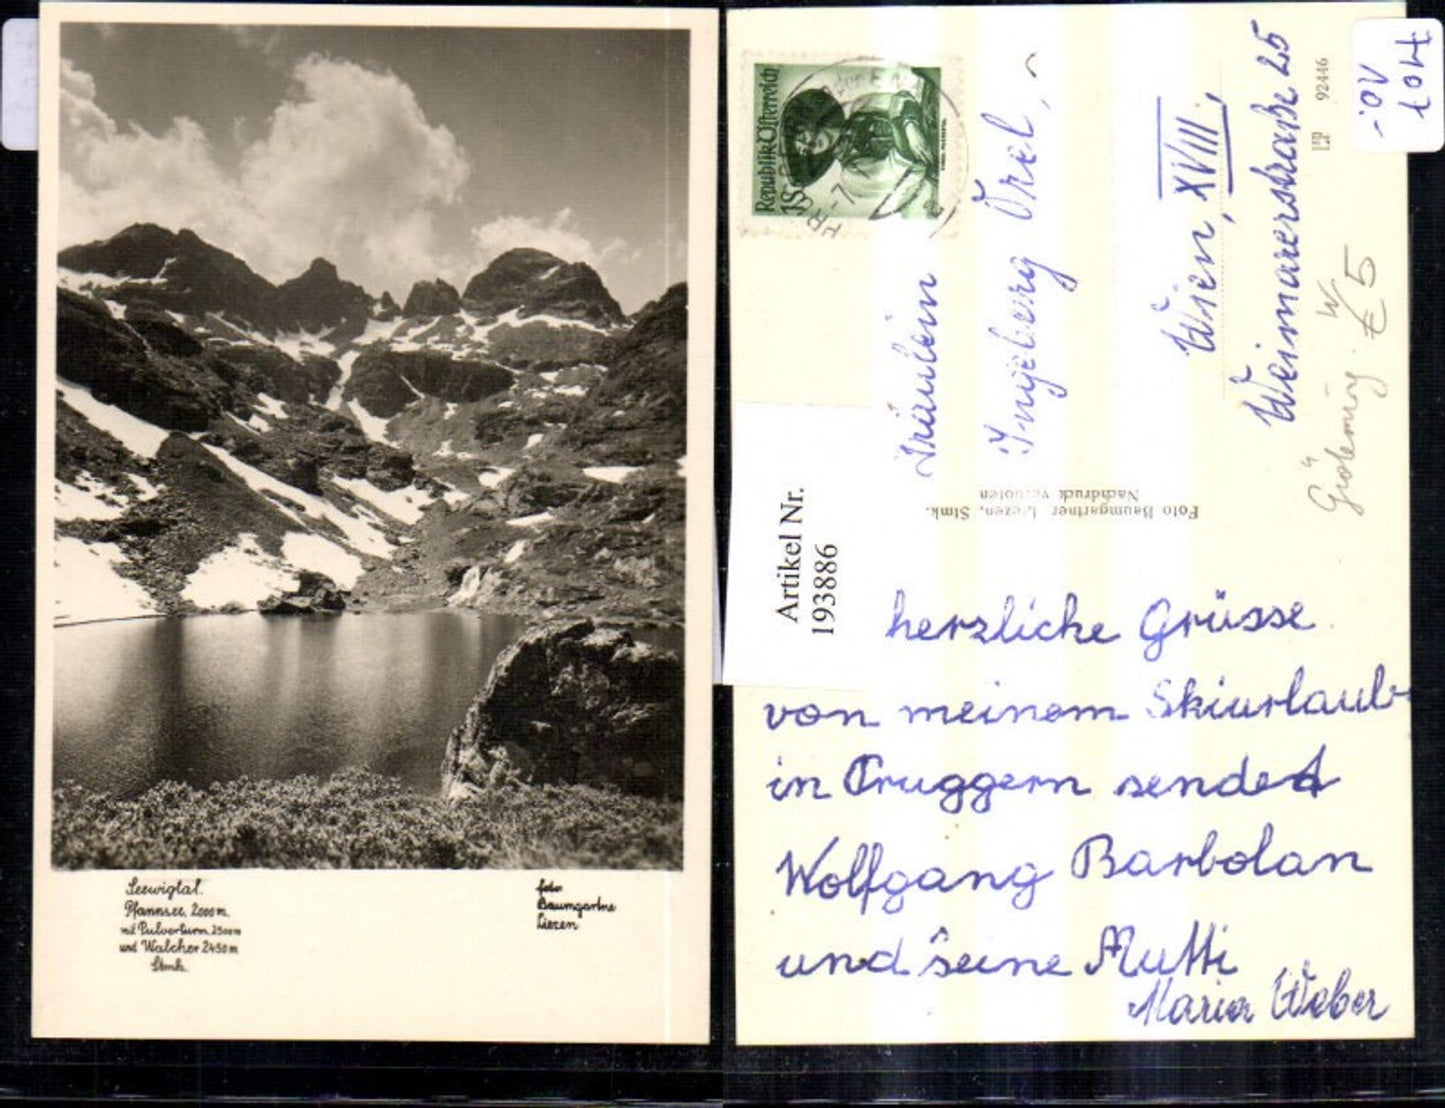 Seewigtal.
Pfannsee, 2000 m.
mit Pulverturm 2500 m
und Walcher 2450 m
Stmk.
foto
Baumgartne
Liezen
Republik Österreich
1S
Fräulein
Ingeberg Orel,
Wien, XVIII.,
Weimarerstraße 25
92446
10.-
€ 5
Gröbming
Foto Baumgartner Liezen, Stmk.
Nachdruck verboten
Artikel Nr.
193886
herzliche Grüsse
von meinem Skiurlaub
in Pruggern sendet
Wolfgang Barbolan
und seine Mutti
Maria Weber